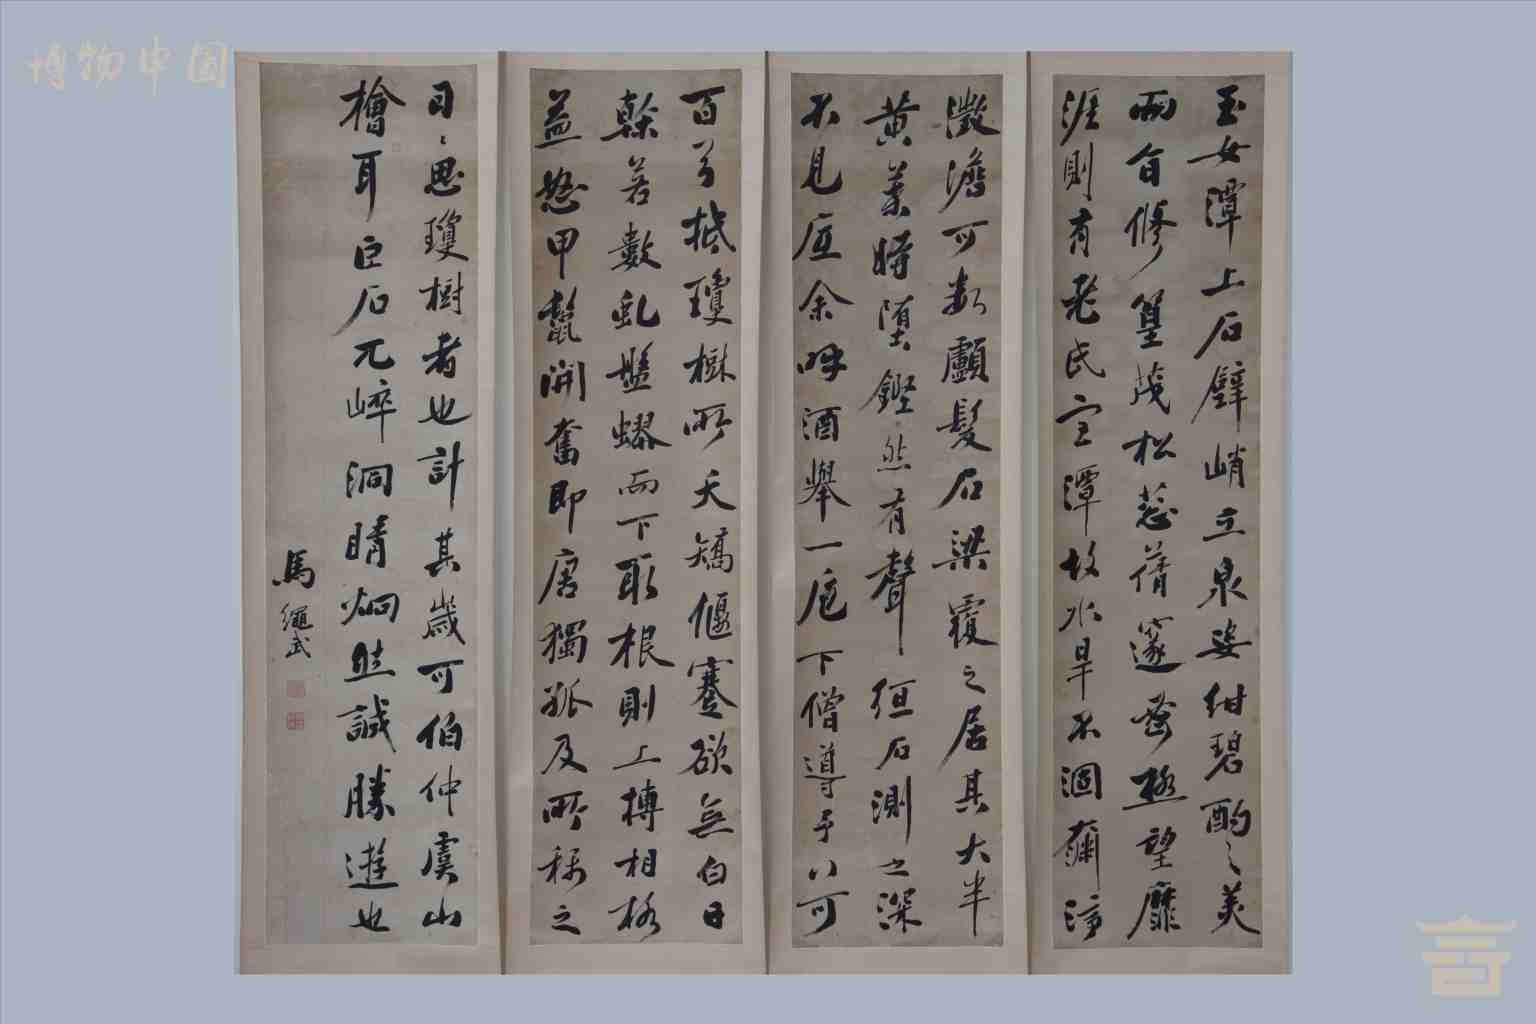 博物中国
玉女潭上石壁峭立泉姿紺碧酌之美
兩自修篁茂松蔥蒨邃密極望靡
涯則有老氏宮潭故水旱不涸爾
澂澹可數顱髮石梁覆之居其大半
黃葉時墮鏗然有聲緪石測之深
不見底余呼酒舉一卮下僧導予八可
百弓抵瓊樹所夭矯偃蹇欲無白日
榦若數虬盤蟉而下取根則上摶相格
益怒甲鬣開奮即唐獨孤及所稱之
日日思瓊樹者也計其歲可伯仲虞山
檜耳臣石兀崒洞睛炯然誠勝遊也
馬繩武